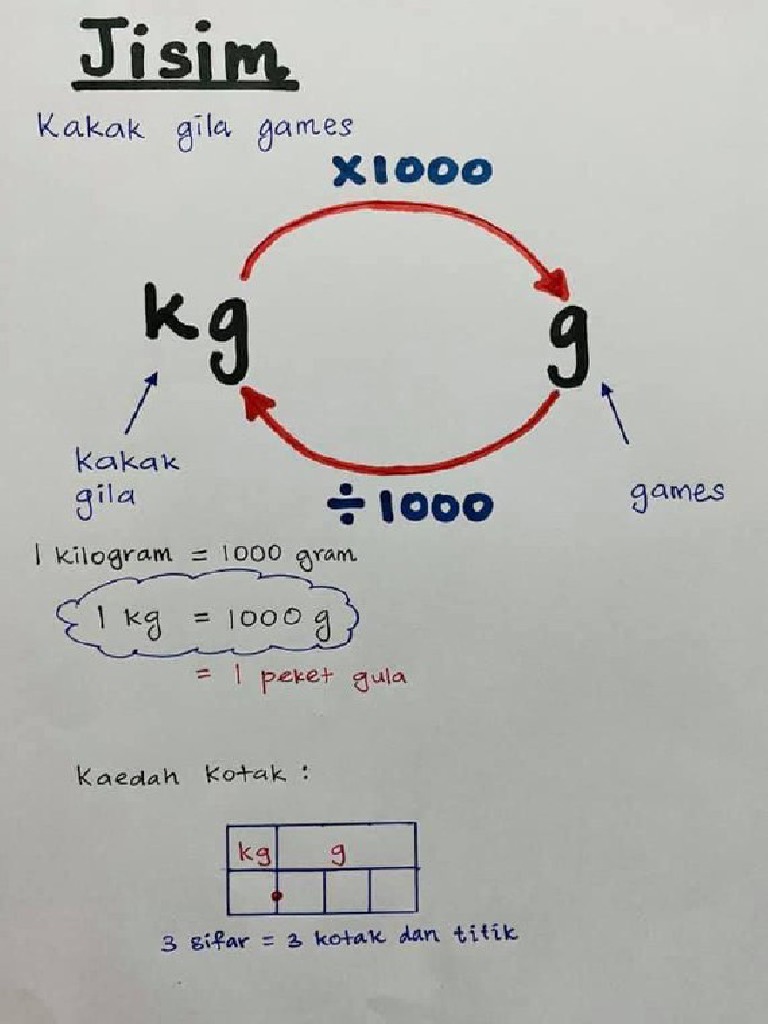 Jisim
Kakak gila games
x1000
kg
g
kakak
gila
games
÷1000
1 kilogram = 1000 gram
1 kg = 1000 g
= 1 peket gula
Kaedah kotak :
kg g
3 sifar = 3 kotak dan titik